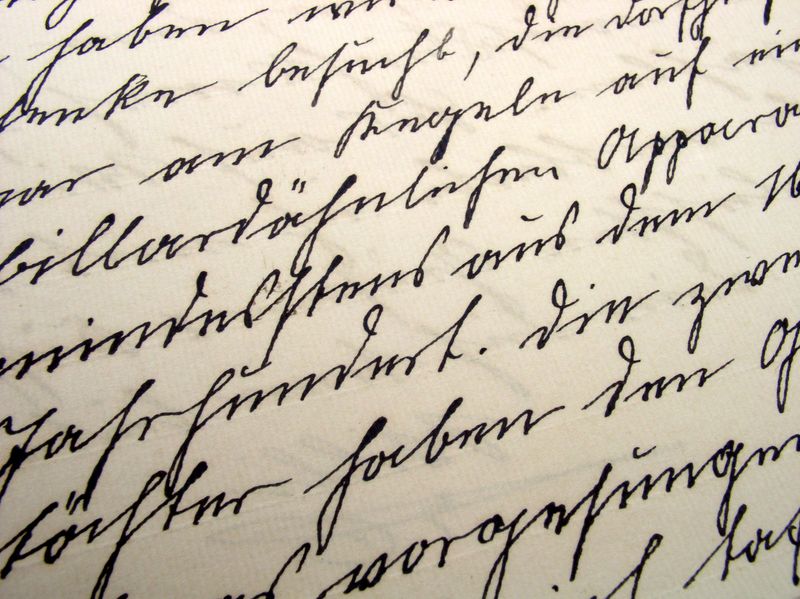 haben
enke besucht, die
ar am Kegeln auf ein
billardähnlichen Appara
mindestens aus dem 16
Jahrhundert. Die zwe
töchter haben den G
as vorgesungen